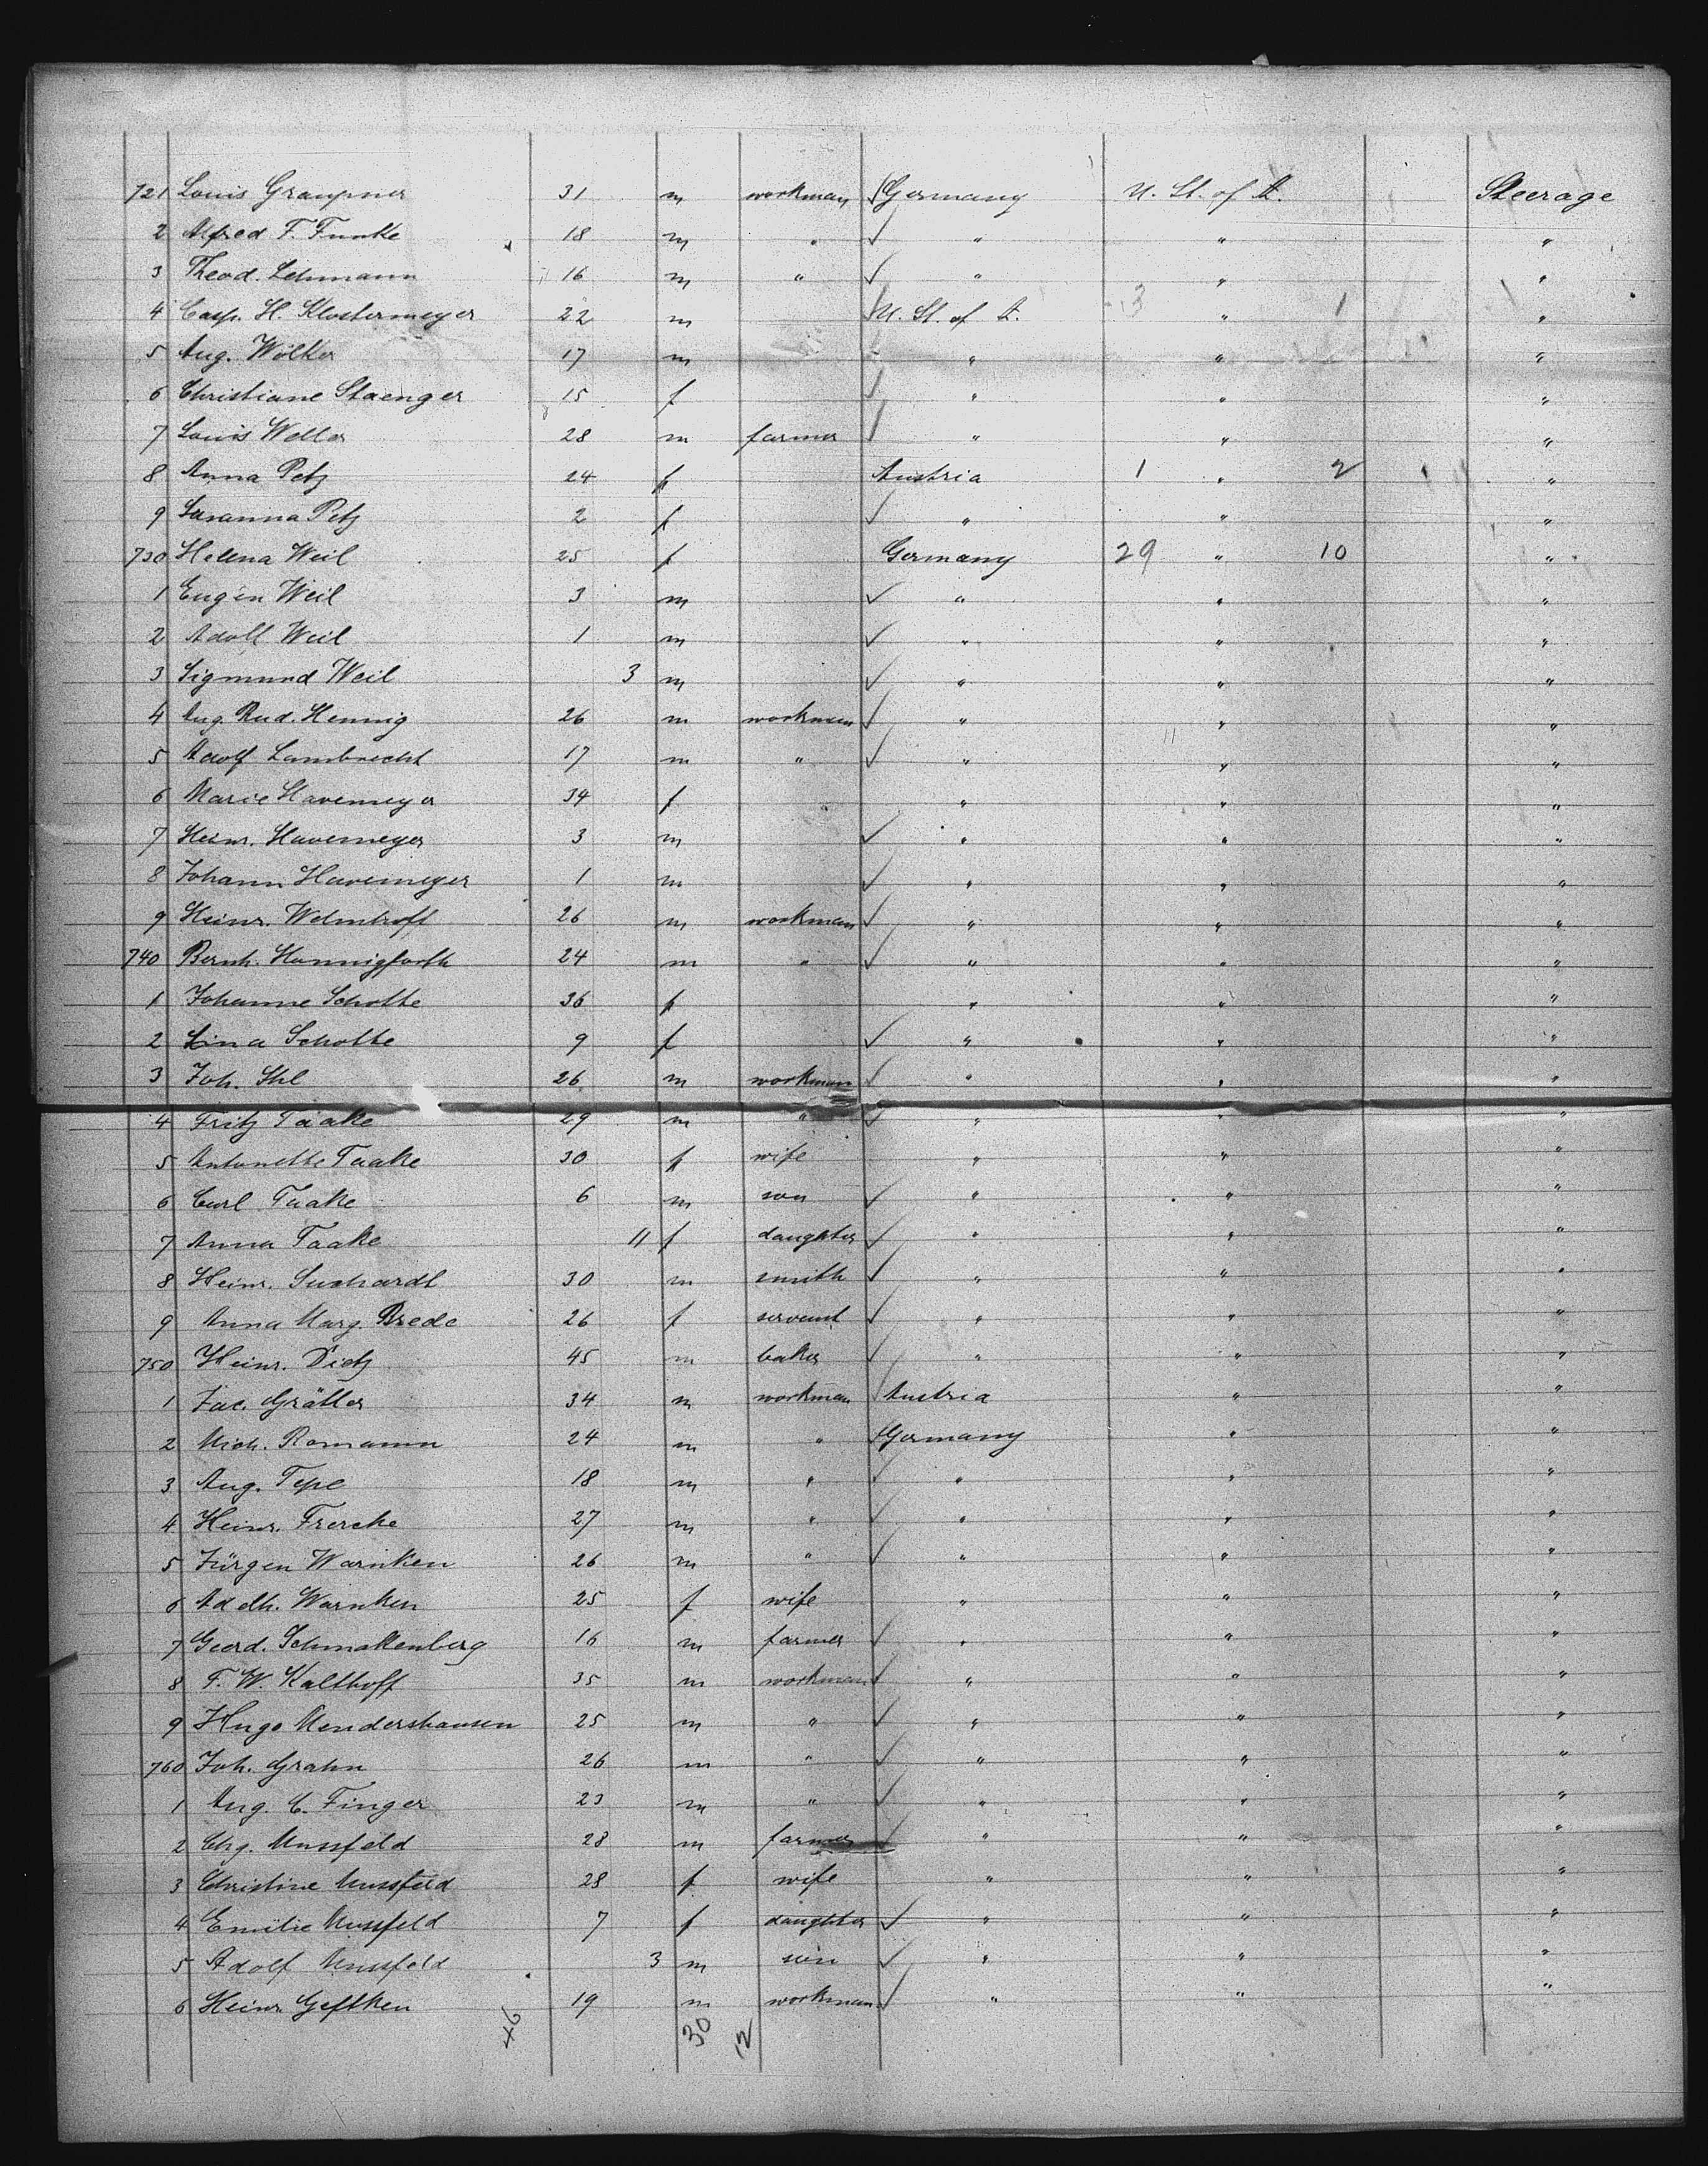 721 Louis Graupner 31 m workman Germany U. St. of A. Steerage
2 Alfred F. Funke 18 m " " " "
3 Theod. Lehmann 16 m " " " "
4 Casp. H. Klostermeyer 22 m U. St. of A. 3 " 1 "
5 Aug. Wölker 17 m " " "
6 Christiane Staenger 15 f " " "
7 Louis Weller 28 m farmer " " "
8 Anna Petz 24 f Austria 1 " 2 "
9 Susanna Petz 2 f " " "
730 Helena Weil 25 f Germany 29 " 10 "
1 Eugen Weil 3 m " " "
2 Adolf Weil 1 m " " "
3 Sigmund Weil 3 m " " "
4 Aug. Rud. Hennig 26 m workman " " "
5 Adolf Lambrecht 17 m " " " "
6 Marie Havemeyer 34 f " " "
7 Heinr. Havemeyer 3 m " " "
8 Johann Havemeyer 1 m " " "
9 Heinr. Welmhoff 26 m workman " " "
740 Bernh. Hannigforth 24 m " " " "
1 Johanne Schotte 36 f " " "
2 Lina Schotte 9 f " " "
3 Joh. 26 m workman " " "
4 Fritz Taake 29 m " " " "
5 Antonette Taake 30 f wife " " "
6 Carl Taake 6 m son " " "
7 Anna Taake 11 f daughter " " "
8 Heinr. Suchardt 30 m smith " " "
9 Anna Marg. Brede 26 f servant " " "
750 Heinr. Dietz 45 m baker " " "
1 Jac. Grätler 34 m workman Austria " "
2 Mich. Romann 24 m " Germany " "
3 Aug. Tepe 18 m " " " "
4 Heinr. Frercke 27 m " " " "
5 Jürgen Warnken 26 m " " " "
6 Adelh. Warnken 25 f wife " " "
7 Gerd. Schmallenberg 16 m farmer " " "
8 F. W. Kalthoff 35 m workman " " "
9 Hugo Mendershausen 25 m " " " "
760 Joh. Grahn 26 m " " " "
1 Aug. C. Finger 23 m " " " "
2 Chg. Mussfeld 28 m farmer " " "
3 Christine Mussfeld 28 f wife " " "
4 Emilie Mussfeld 7 f daughter " " "
5 Adolf Mussfeld 3 m son " " "
6 Heinr. Geffken 19 m workman " " "
46 30 12